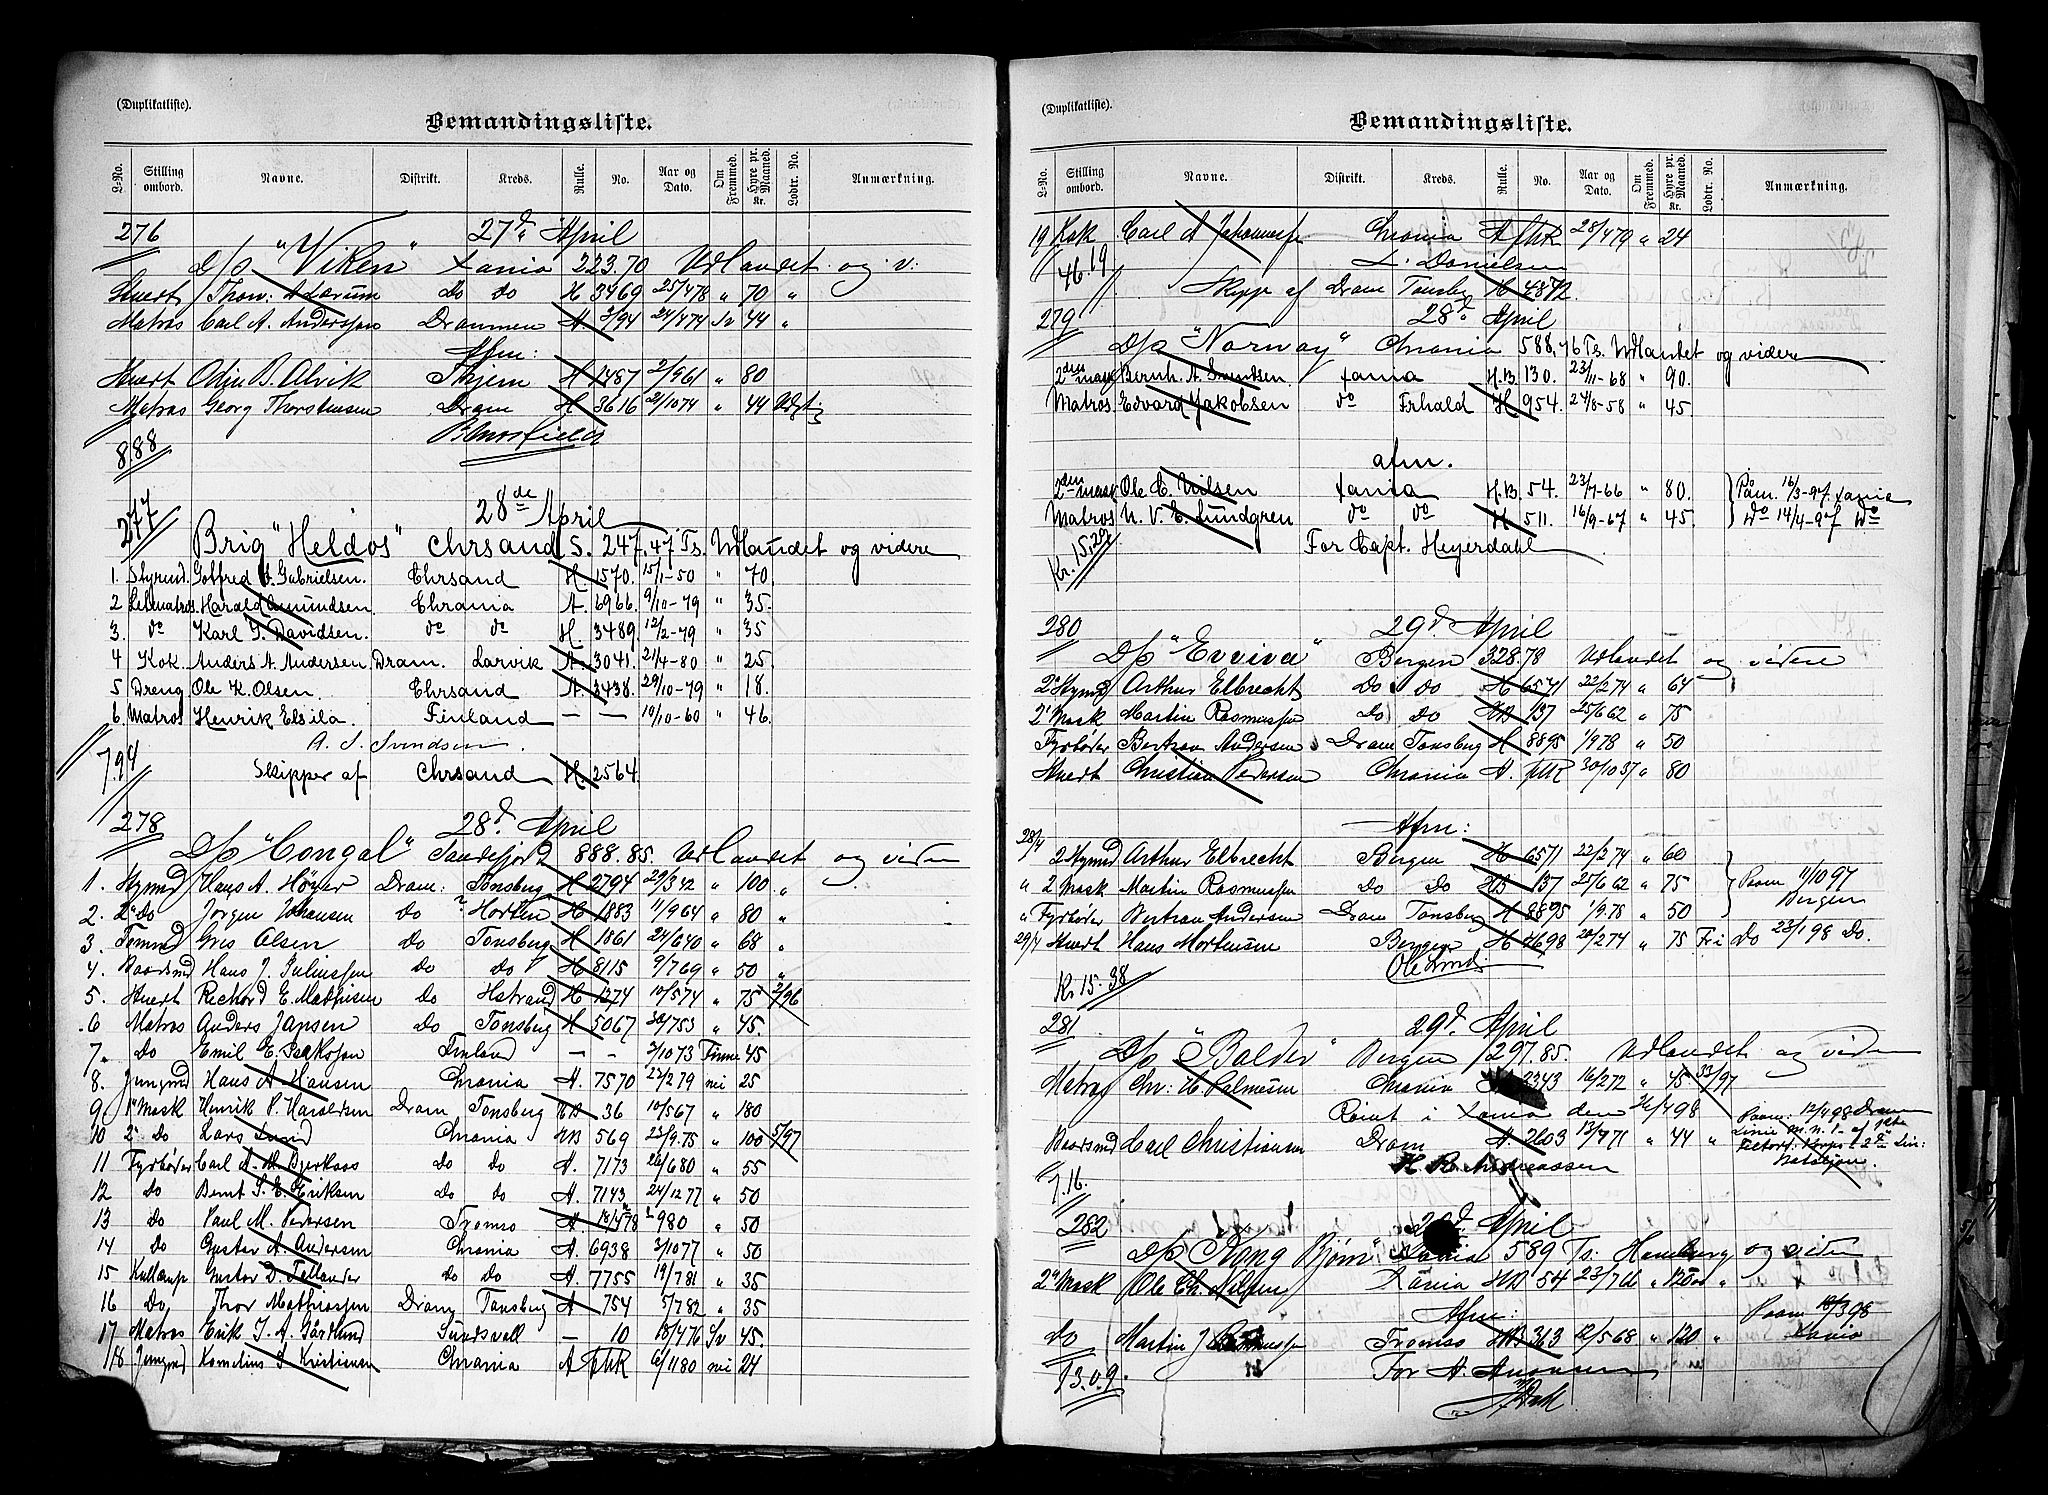 (Duplikatliste).
Bemandingsliste.
L-No. Stilling ombord. Navne. Distrikt. Kreds. Rulle. No. Aar og Dato. Om Fremmed. Hyre pr. Maaned. Kr. Lodtr. No. Anmærkning.
276 27d April
D/s "Viken" Xania 223.70 Udlandet og v:
Stuert Thorv: Do Do H 3469 25/4 78 " 70 "
Matros Carl A. Anderssen Drammen A. 3/94 24/4 74 Sv 44 "
Afm:
Stuert Odin B. Alvik H 1487 2/9 61 " 80
Matros Georg Thorstensen Dram H 3616 2/10 74 " 44
8.88
277 28de April
Brig "Heldos" Chrsand S. 247,47 Ts. Udlandet og videre
1. Styrmd. Gotfred Gabrielsen. Chrsand H. 1570. 15/1-50 " 70.
2 Letmatros. Harald Amundsen. Chrania A. 6966. 9/10-79 " 35.
3. do Karl G. Davidsen. do do H. 3489. 12/2-79 " 35
4 Kok. Anders A. Andersen Dram. Larvik A. 3041. 21/4-80 " 25
5 Dreng Ole K. Olsen. Chrsand A. 3438. 29/10-79 " 18.
6. Matros Henrik Elsila. Finland — — 19/10-60 " 46.
A. S. Svendsen.
7.94 Skipper af Chrsand H. 2564.
278 28d. April
D/s "Congal" Sandefjord 888.85. Udlandet og viden
1. Stymd Hans A. Höyer Dram: Tonsberg H 2794 29/3 42 " 100 "
2. 2d Do Jörgen Johansen Do " Horten H 1883 11/9 64 " 80 "
3. Tømmd Olsen Do Tonsberg H 1861 24/6 40 " 68 "
4. Baadsmd Hans J. Juliussen Do Do H 8115 9/7 69 " 50 "
5. Stuert Richard E. Mathisen Do Hstrand H 1274 10/5 74 " 75 2/96
6 Matros Anders Jansen Do Tonsberg H 5067 30/7 53 " 45.
7. Do Emil E. Isaksson Finland — - 3/10 73 Finne 45
8. Jungmd Hans A. Hansen Chrania A. 7570 22/2 79 nei 25
9 1' Mask Henrik P. Haraldsen Dram Tonsberg HB 36 10/5 67 " 180
10 2d Do Lars Lund Chrania HB 569 23/9.75 " 100 5/97
11 Fyrböder Carl A. M. Bjerkaas Do Do A. 7173 26/6 80 " 55
12 Do Bernt S. E. Eriksen Do Do A. 7143 24/12 77 " 50
13 Do Paul M. Pedersen Tromsö A. 980 " 50
14 Do Gustav A. Andersen Chrania A. 6938 3/10 77 " 50
15 Kullemp Gustav D. Do Do A. 7755 19/7 81 " 35
16 Do Thor Mathiassen Dram Tonsberg A 754 5/7 82 " 35
17 Matros Erik J. A. Gårdlund Sundsvall — 10 18/4 76 Sv 45.
18 Jungmd Kornelius S. Kristiansen Chrania A fhR 6/11 80 nei 24
(Duplikatliste).
Bemandingsliste.
L-No. Stilling ombord. Navne. Distrikt. Kreds. Rulle. No. Aar og Dato. Om Fremmed. Hyre pr. Maaned. Kr. Lodtr. No. Anmærkning.
19 Kok Carl A Johannesen Chrania A fhR 28/4 79 " 24
46.19 L. Danielsen
Skipp af Dram Tonsbg H. 4872.
279 28d. April
D/s "Norway" Chrania 588,46 Ts. Udlandet og videre
2den mask Bernh. A. Svendsen. Xania H.B. 130. 23/11-68 " 90.
Matros. Edvard Jakobsen do Frhald H 954. 24/8-58 " 45
afm.
2den mask Ole C. Nilsen Xania H.B. 54. 23/7-66 " 80. Paam. 16/3-97. Xania
Matros N. V. E. Lundgren do do H 511. 16/9-67 " 45. do 14/4-97 do
Kr. 15,20 For Capt. Heyerdahl
280 29d. April
D/s "Evviva" Bergen 328.78 Udlandet og videre
2d Stymd Arthur Elbrecht Do Do H 6571 22/2 74 " 64
2' Mask Martin Rasmussen Do Do HB 137 25/6 62 " 75
Fyrböder Bertran Andersen Dram Tonsberg H 8895 1/9 78 " 50
Stuert Christian Pedersen Chrania A. fhR 30/10 37 " 80
Afm:
28/4 2 Stymd Arthur Elbrecht Bergen H 6571 22/2 74 " 60
" 2 Mask Martin Rasmussen Do Do HB 137 25/6 62 " 75 Paam 11/10 97
" Fyrböder Bertran Andersen Dram Tonsberg H 8895 1/9.78 " 50 Bergen
29/4 Stuert Hans Mortensen Bergen H 4698 20/2 74 " 75 Fri Do 23/1 98 Do.
Ole Lund
Kr 15.38
281 29d. April
D/s "Balder" Bergen 1297.85. Udlandet og viden
Matros Chr: H. Palmesen Chrania 2343 16/2 72 " 45 33/97
Römt i Xania den 26/4 98 Paam: 12/4 98 Dram
Baadsmd Carl Christiansen Dram A. 2603 13/7 71 " 44 "
7.16. H. R. Andreassen
282 29d. April
D/s "Kong Bjørn" Xania 589 Ts: Hamburg og viden
2d Mask Ole Ch. Nilsen Xania HB 54 23/7 66 " 120 "
Afm: Paam 18/3 98
do Martin J Rasmussen Tromsö HB 363 12/5 68 " 120 " Xania
13.09. For A.